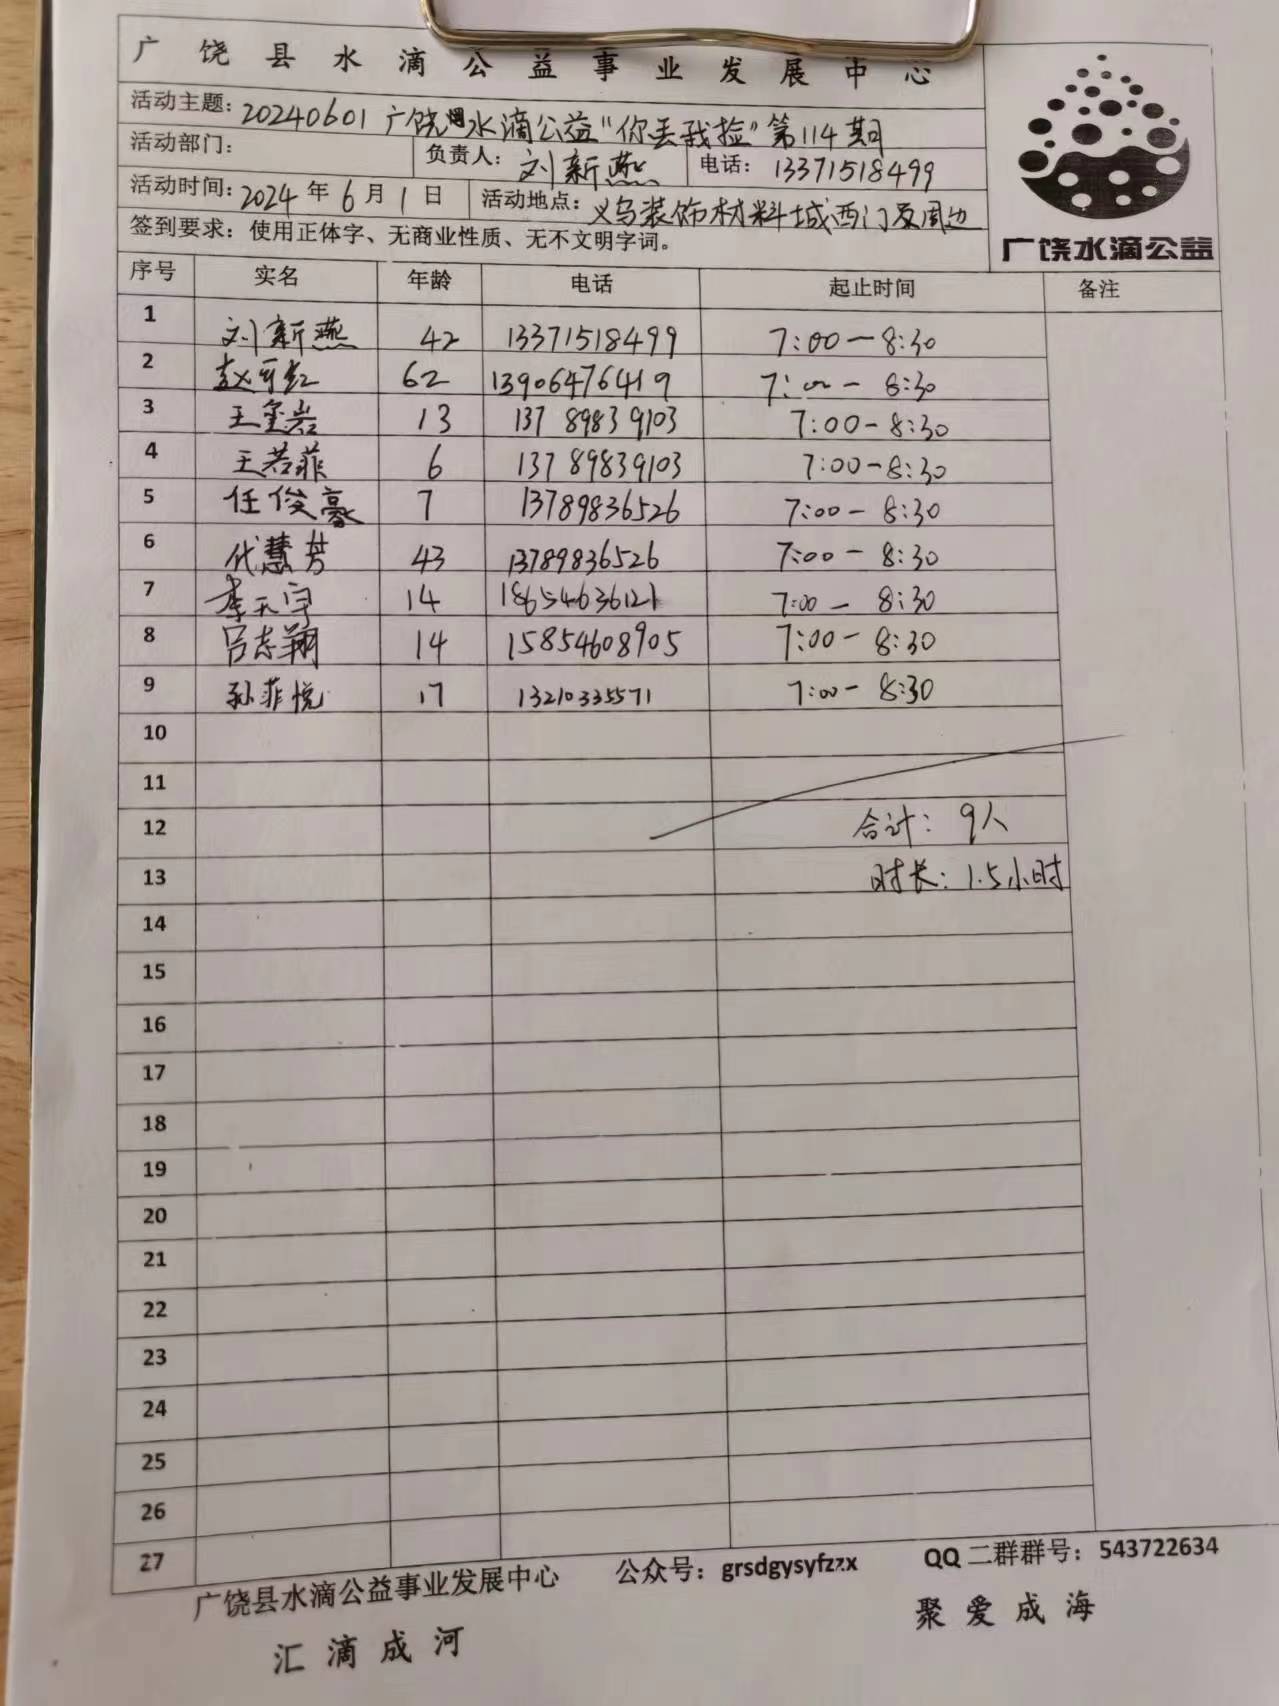 广饶县水滴公益事业发展中心
活动主题：20240601广饶水滴公益"你丢我捡"第114期
活动部门： 负责人：刘新燕 电话：13371518499
活动时间：2024年6月1日 活动地点：义乌装饰材料城西门及周边
签到要求：使用正体字、无商业性质、无不文明字词。
广饶水滴公益
序号 实名 年龄 电话 起止时间 备注
1 刘新燕 42 13371518499 7:00-8:30
2 62 13906476419 7:00-8:30
3 王玺岩 13 13789839103 7:00-8:30
4 王若菲 6 13789839103 7:00-8:30
5 任俊豪 7 13789836526 7:00-8:30
6 代慧芳 43 13789836526 7:00-8:30
7 李天宇 14 18654636121 7:00-8:30
8 吕志翔 14 15854608905 7:00-8:30
9 孙菲悦 17 13210335571 7:00-8:30
10
11
12 合计：9人
13 时长：1.5小时
14
15
16
17
18
19
20
21
22
23
24
25
26
27
广饶县水滴公益事业发展中心 公众号：grsdgysyfzzx QQ二群群号：543722634
汇滴成河 聚爱成海